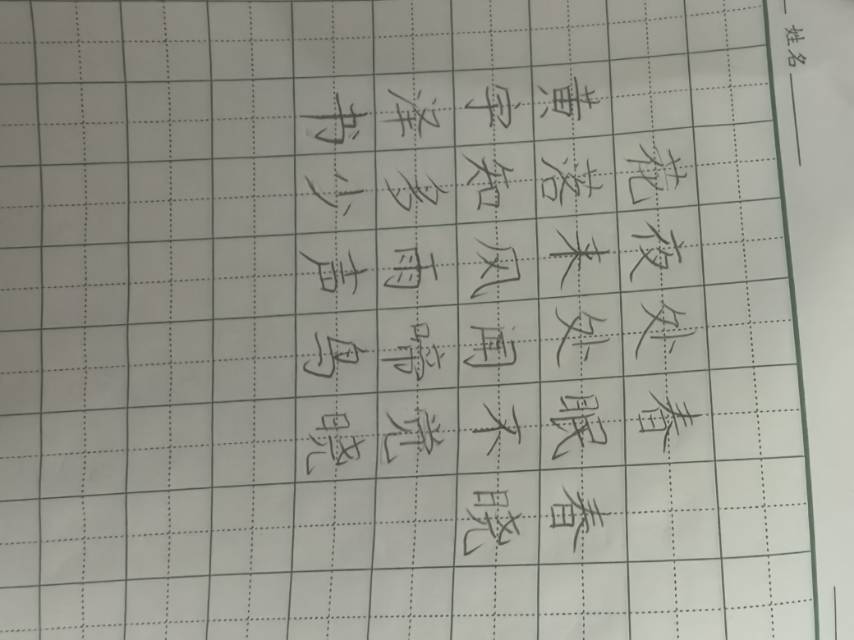 春晓
春眠不觉晓
处处闻啼鸟
夜来风雨声
花落知多少
黄宇泽书
姓名